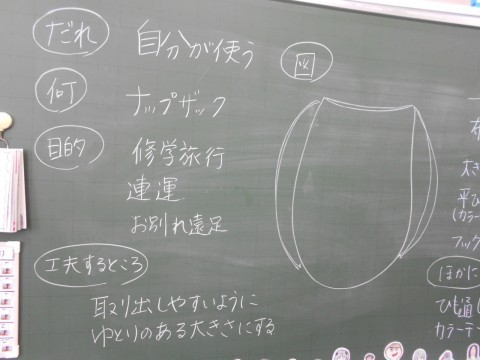 だれ 自分が使う
何 ナップザック
目的 修学旅行
連運
お別れ遠足
工夫するところ
取り出しやすいように
ゆとりのある大きさにする
図
布
大き
平ひ
(カラー
フック
ほかに
ひも通し
カラーテー